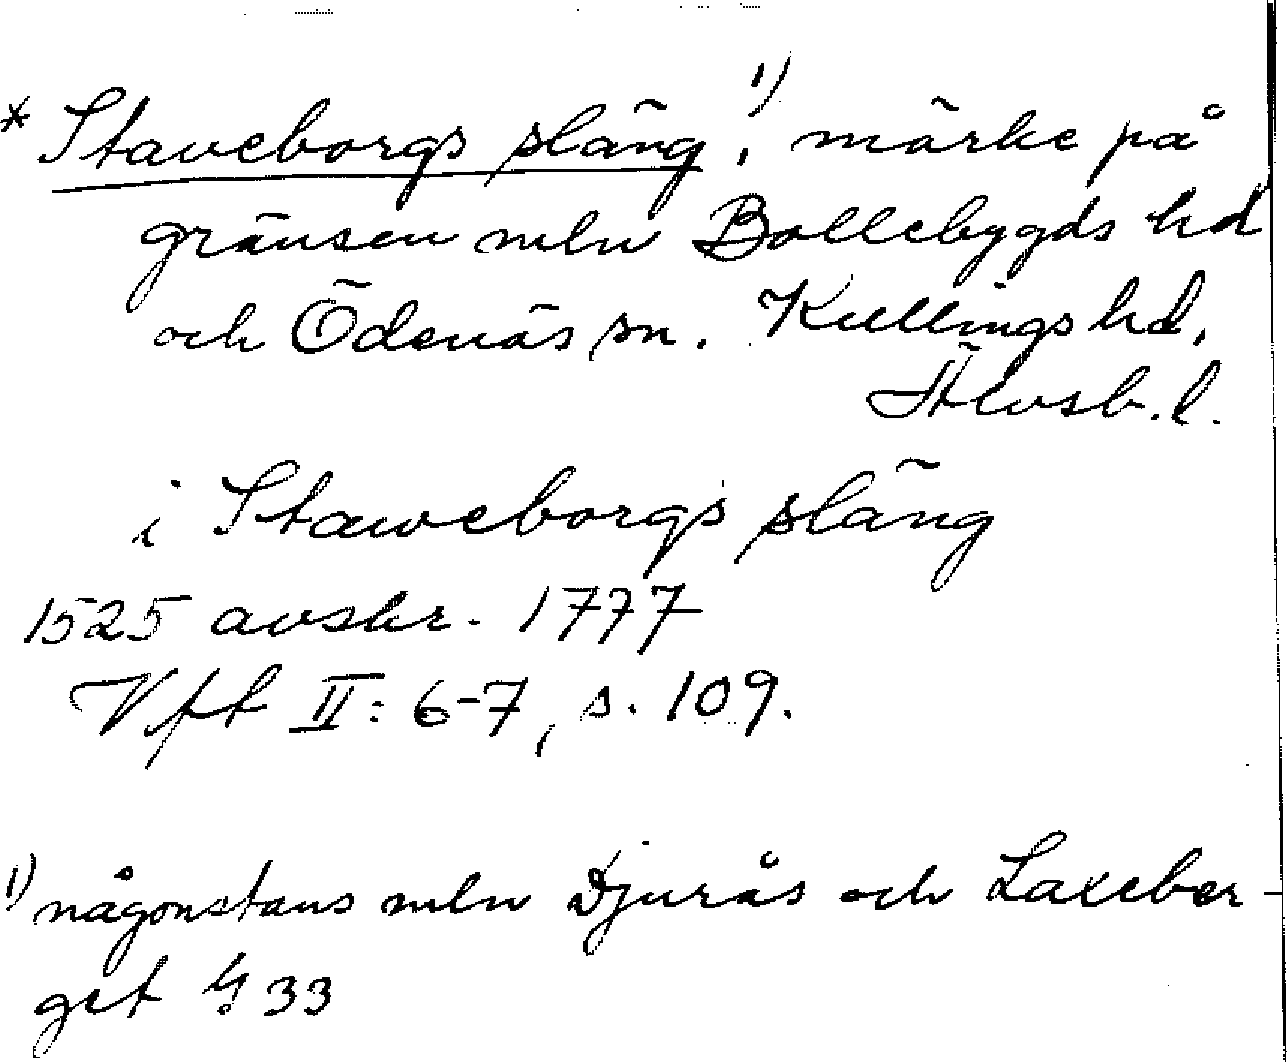 * Staveborgs släng ¹⁾, märke på
gränsen mln Bollebygds hd
och Ödenäs sn. Kullings hd,
Älvsb. l.
i Staweborgs släng
1525 avskr. 1777
Vft II: 6-7, s. 109.
¹⁾ någonstans mln Djurås och Laxeber-
get G 33